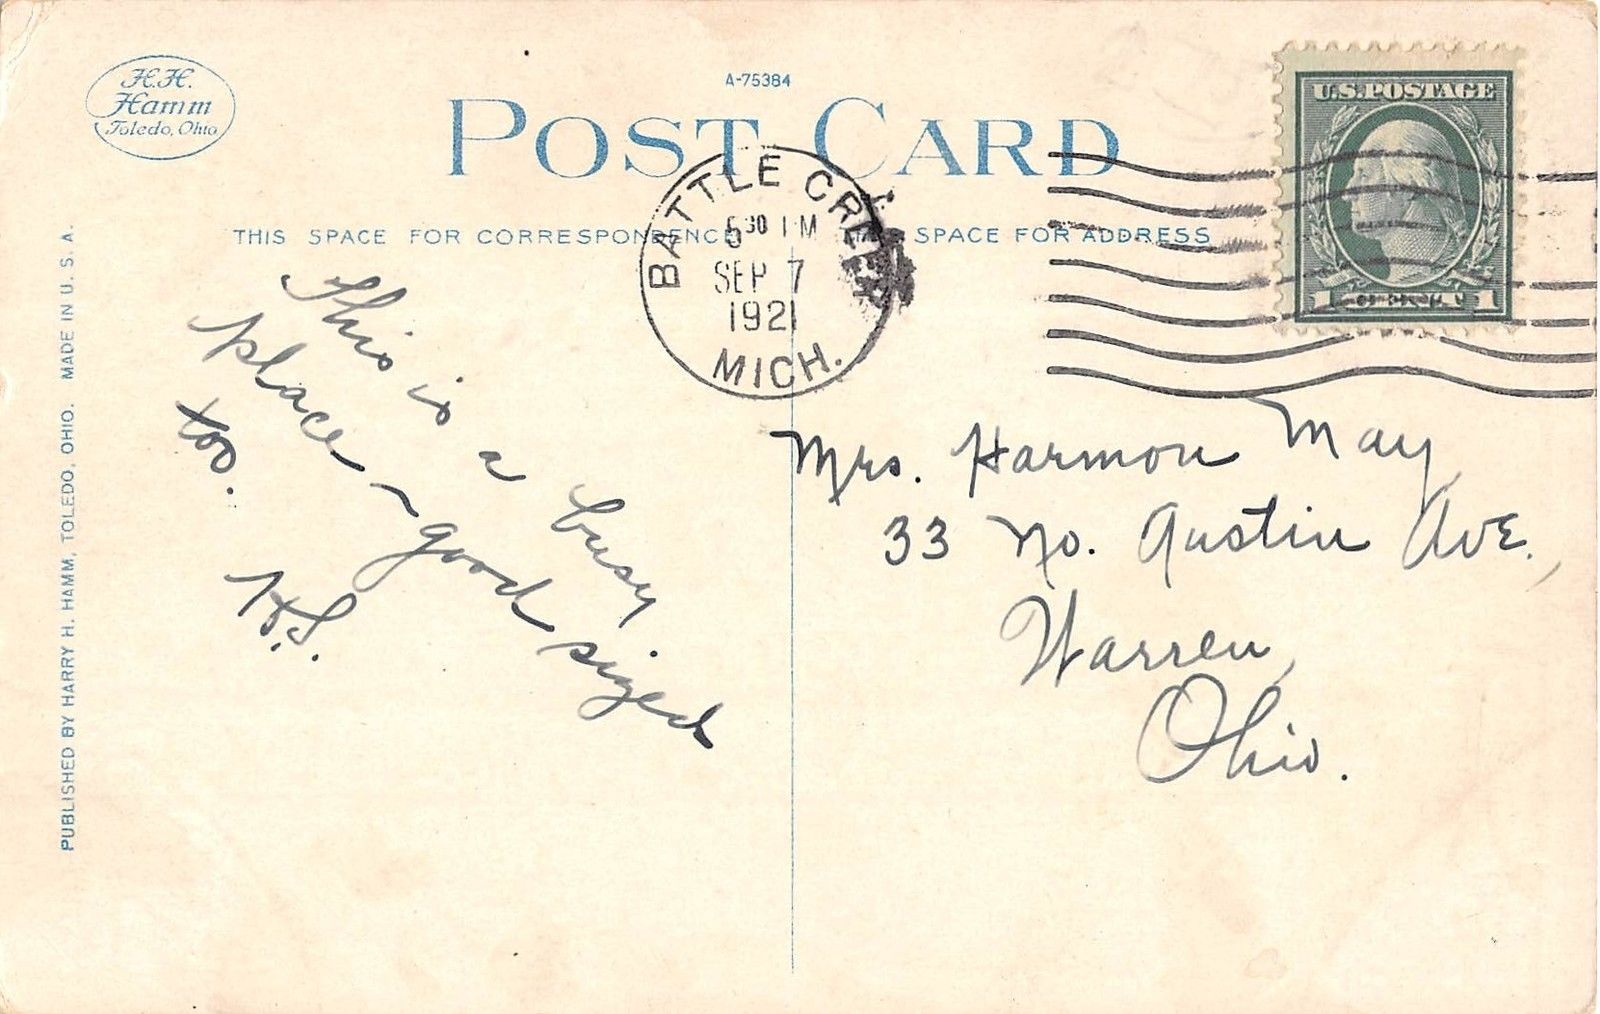 H.H.
Hamm
Toledo, Ohio
A-75384
POST CARD
THIS SPACE FOR CORRESPONDENCE
SPACE FOR ADDRESS
BATTLE CREEK
5 30 PM
SEP 7
1921
MICH.
U.S. POSTAGE
1 CENT 1
This is a busy
place - good sized
too.
H.S.
Mrs. Harmon May,
33 No. Austin Ave.,
Warren,
Ohio.
PUBLISHED BY HARRY H. HAMM, TOLEDO, OHIO. MADE IN U. S. A.